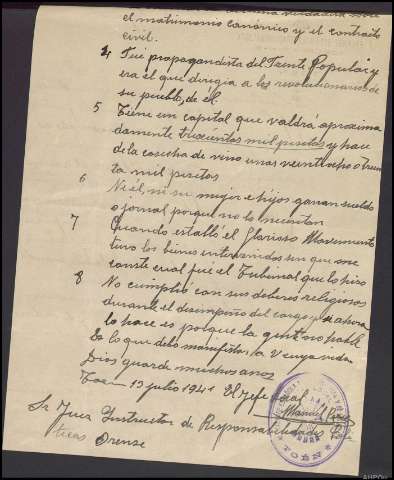 el matrimonio canónico y el contrato
civil.
4 Fué propagandista del Frente Popular y
era el que dirigia a los revolucionarios de
su pueblo, de él.
5 Tiene un capital que valdrá aproxima
damente trescientas mil pesetas y hace
de la cosecha de vino unas veintiocho o trein
ta mil pesetas
6 Ni él, ni su mujer e hijos ganan sueldo
o jornal porque no lo necesitan
7 Cuando estalló el Glorioso Movimiento
tuvo los bienes intervenidos sin que me
conste cual fue el Tribunal que lo hizo
8 No cumplió con sus deberes religiosos
durante el desempeño del cargo y si ahora
lo hace es porque la gente no hable
Es lo que debo manifestar a V. cuya vida
Dios guarde muchos anos
Toen 13 julio 1941 El Jefe local
Manuel
Sr Juez Instructor de Responsabilidades Polí
ticas Orense
TOÉN
AHPOu